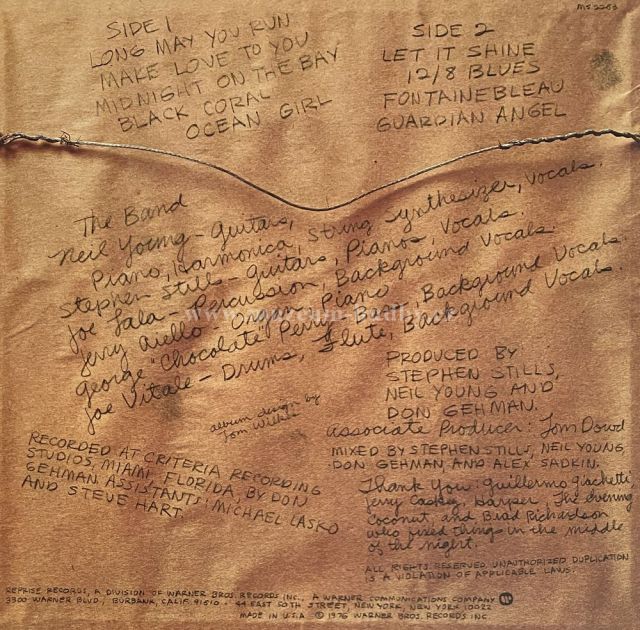 MS 2253
SIDE 1
LONG MAY YOU RUN
MAKE LOVE TO YOU
MIDNIGHT ON THE BAY
BLACK CORAL
OCEAN GIRL
SIDE 2
LET IT SHINE
12/8 BLUES
FONTAINEBLEAU
GUARDIAN ANGEL
The Band
Neil Young - Guitars,
Piano, Harmonica, String Synthesizer, Vocals.
Stephen Stills - Guitars, Pianos, Vocals.
Joe Lala - Percussion, Background Vocals
Jerry Aiello - Organ, Piano
George "Chocolate" Perry, Bass, Background Vocals.
Joe Vitale - Drums, Flute, Background Vocals.
album design by
Tom Wilkes
PRODUCED BY
STEPHEN STILLS,
NEIL YOUNG AND
DON GEHMAN.
Associate Producer: Tom Dowd
MIXED BY STEPHEN STILLS, NEIL YOUNG
DON GEHMAN, AND ALEX SADKIN.
Thank You: Guillermo Giachetti,
Jerry Harper, The evening
Coconut, and Brad Richardson
who fixed things in the middle
of the night.
RECORDED AT CRITERIA RECORDING
STUDIOS, MIAMI, FLORIDA, BY DON
GEHMAN. ASSISTANTS: MICHAEL LASKO
AND STEVE HART.
ALL RIGHTS RESERVED. UNAUTHORIZED DUPLICATION
IS A VIOLATION OF APPLICABLE LAWS.
REPRISE RECORDS, A DIVISION OF WARNER BROS. RECORDS INC., A WARNER COMMUNICATIONS COMPANY
3300 WARNER BLVD., BURBANK, CALIF. 91510 · 44 EAST 50TH STREET, NEW YORK, NEW YORK 10022
MADE IN U.S.A. © 1976 WARNER BROS. RECORDS INC.